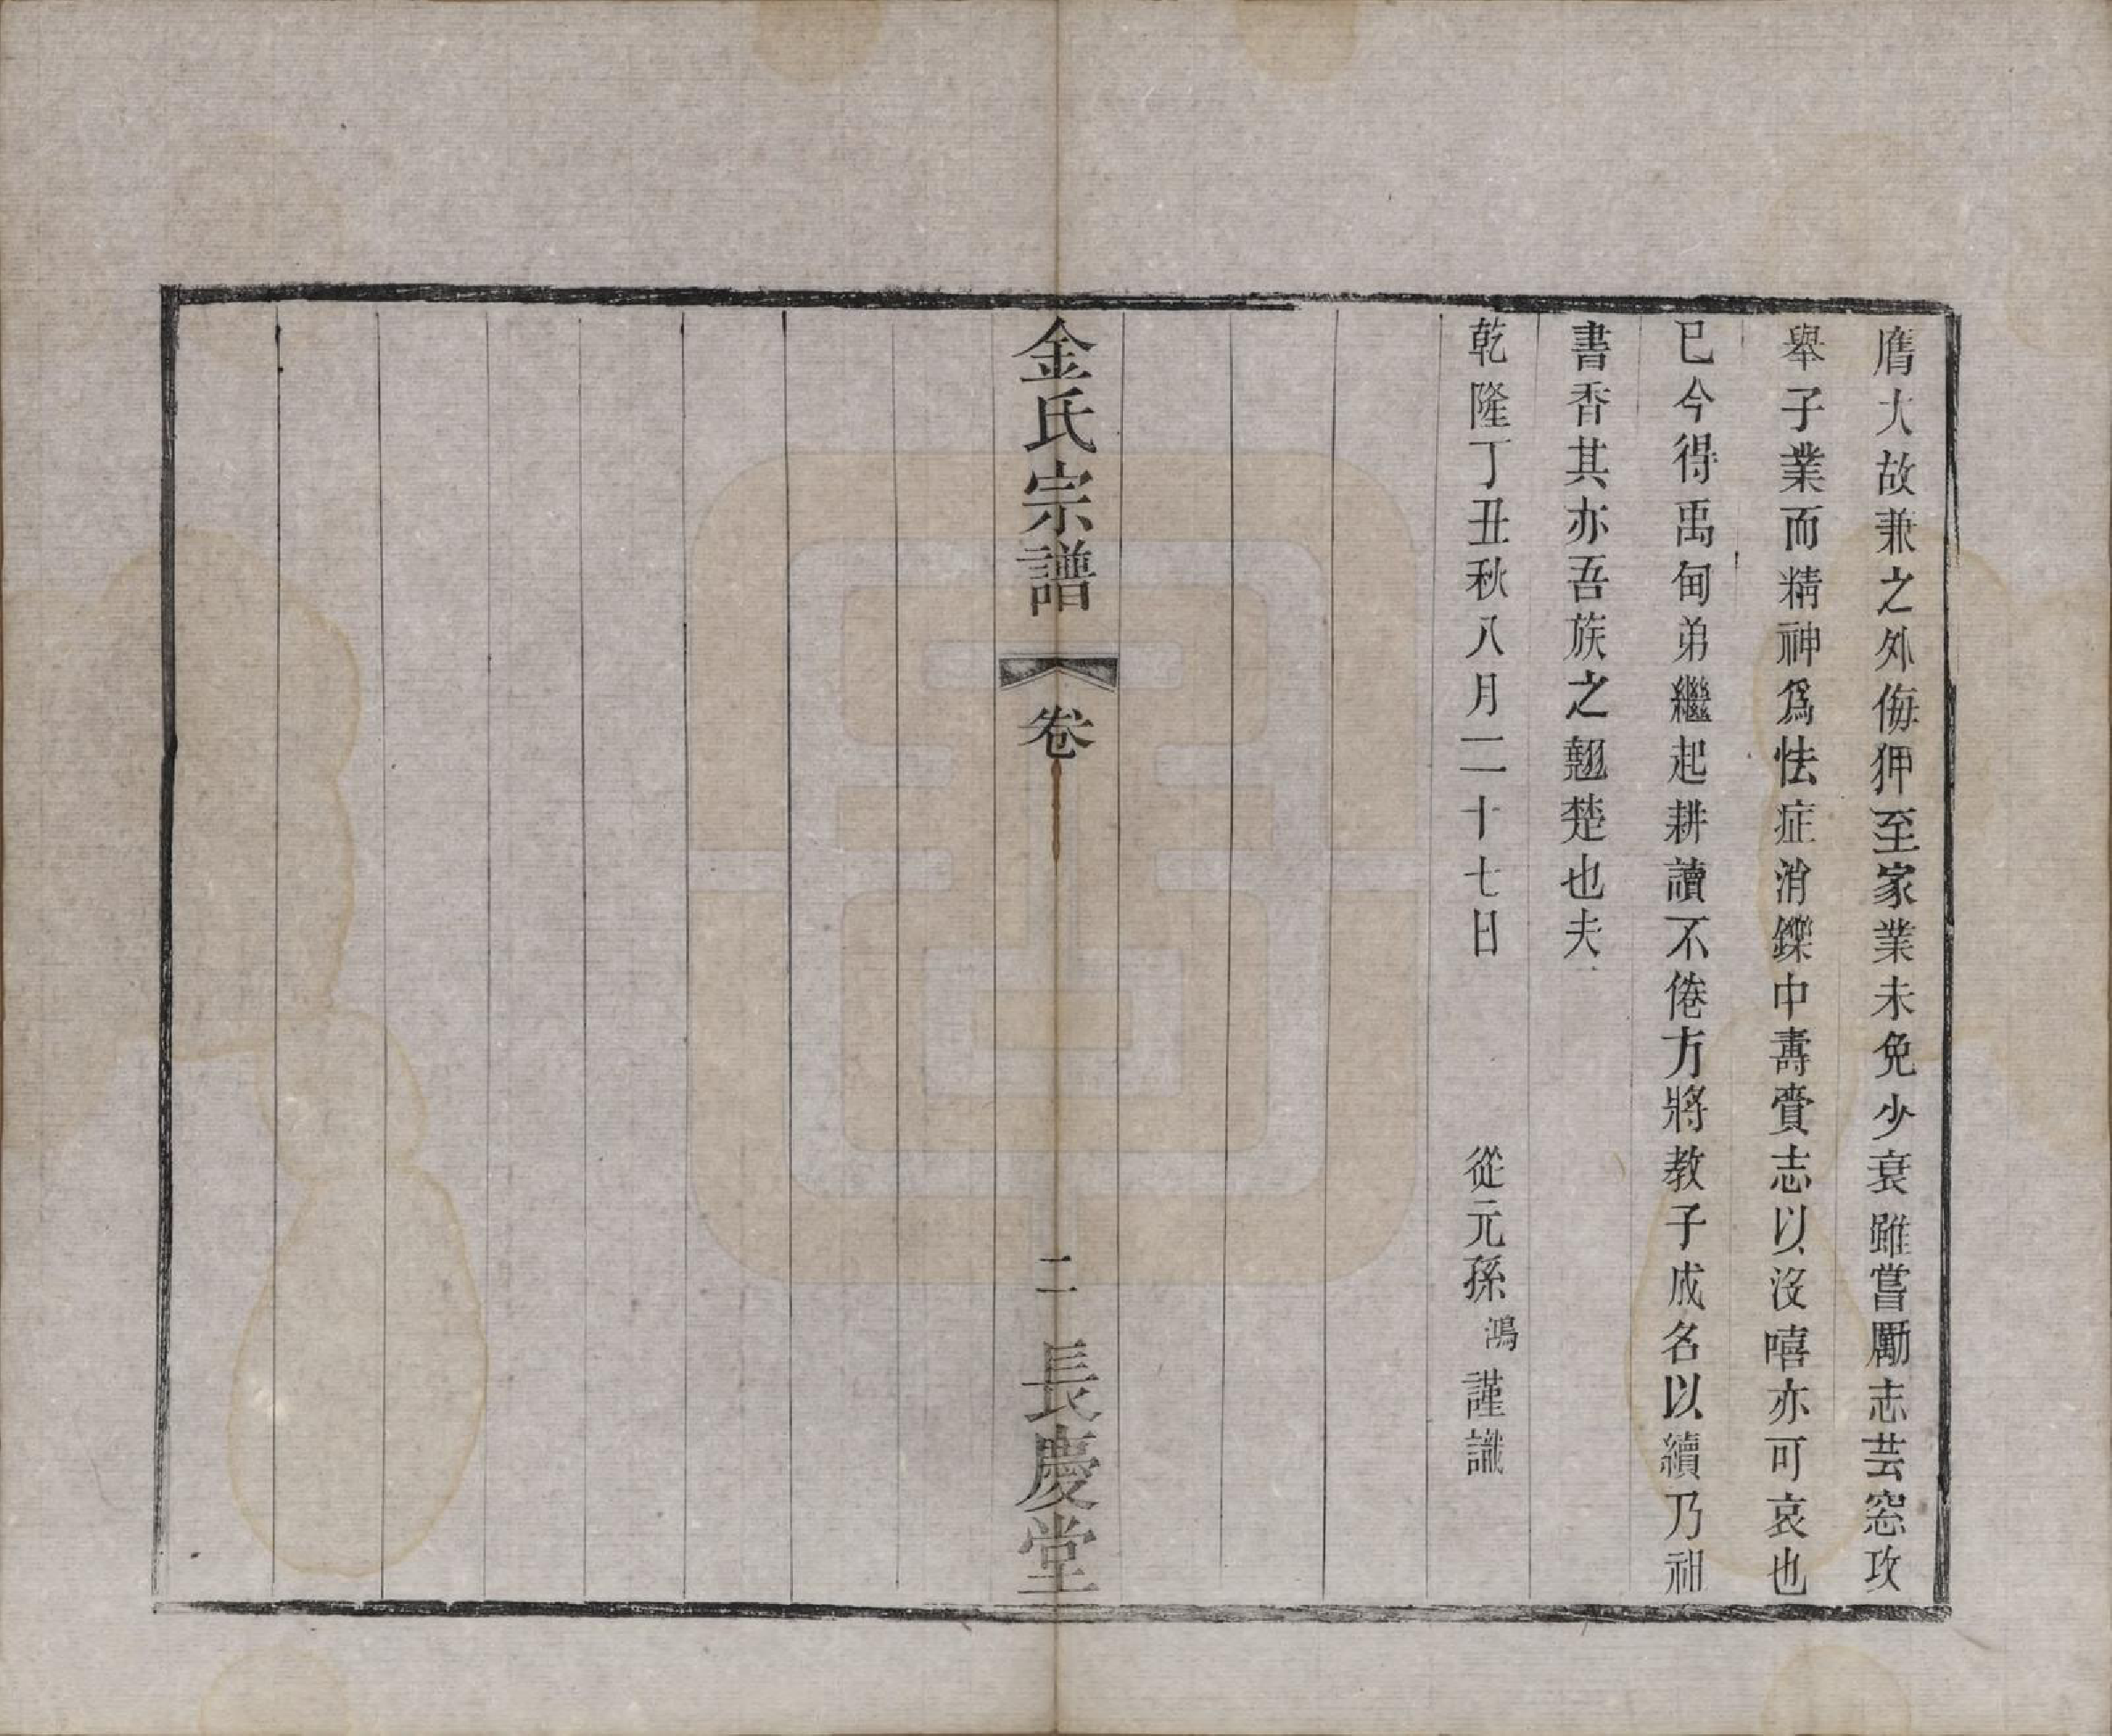 膺大故兼之外侮狎至家業未免少衰雖嘗勵志芸窓攻
舉子業而精神爲怯症消鑠中壽賫志以沒嘻亦可哀也
已今得禹甸弟繼起耕讀不倦方將教子成名以續乃祖
書香其亦吾族之翹楚也夫
乾隆丁丑秋八月二十七日 從元孫鴻謹識
金氏宗譜 卷 二 長慶堂